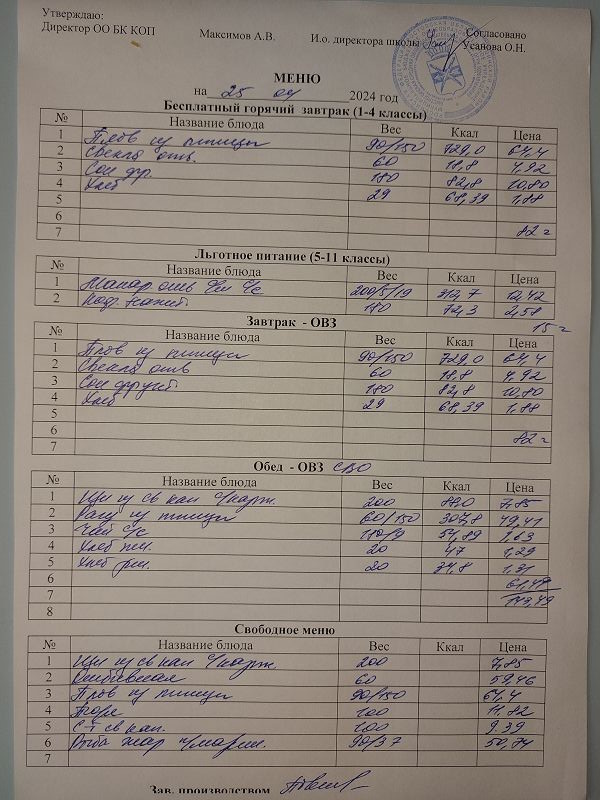 Утверждаю:
Директор ОО БК КОП Максимов А.В. И.о. директора школы Согласовано
Усанова О.Н.
МЕНЮ
на 25 04 2024 год
Бесплатный горячий завтрак (1-4 классы)
№ Название блюда Вес Ккал Цена
1 Плов из птицы 90/150 729,0 64,4
2 Свекла отв. 60 18,8 4,92
3 Сок фр. 180 82,8 10,80
4 Хлеб 29 68,39 1,88
5
6
7 82=
Льготное питание (5-11 классы)
№ Название блюда Вес Ккал Цена
1 Макар отв 200/5/19 312,7 12,42
2 Коф. напит. 180 72,3 2,58
15=
Завтрак - ОВЗ
№ Название блюда Вес Ккал Цена
1 Плов из птицы 90/150 729,0 64,4
2 Свекла отв 60 18,8 4,92
3 Сок фрукт. 180 82,8 10,80
4 Хлеб 29 68,39 1,88
5
6 82=
7
Обед - ОВЗ СВО
№ Название блюда Вес Ккал Цена
1 Щи из св кап с/карт. 200 88,0 7,85
2 Рагу из птицы 60/150 307,8 49,41
3 Чай с/с 180/9 54,89 1,63
4 Хлеб пш. 20 47 1,29
5 Хлеб рж. 20 34,8 1,31
6 61,49
7 143,49
8
Свободное меню
№ Название блюда Вес Ккал Цена
1 Щи из св кап с/карт. 200 7,85
2 60 59,46
3 Плов из птицы 90/150 64,4
4 Пюре 100 11,82
5 С-т св кап. 100 9.39
6 Рыба жар п/марин. 90/37 50,74
7
Зав. производством